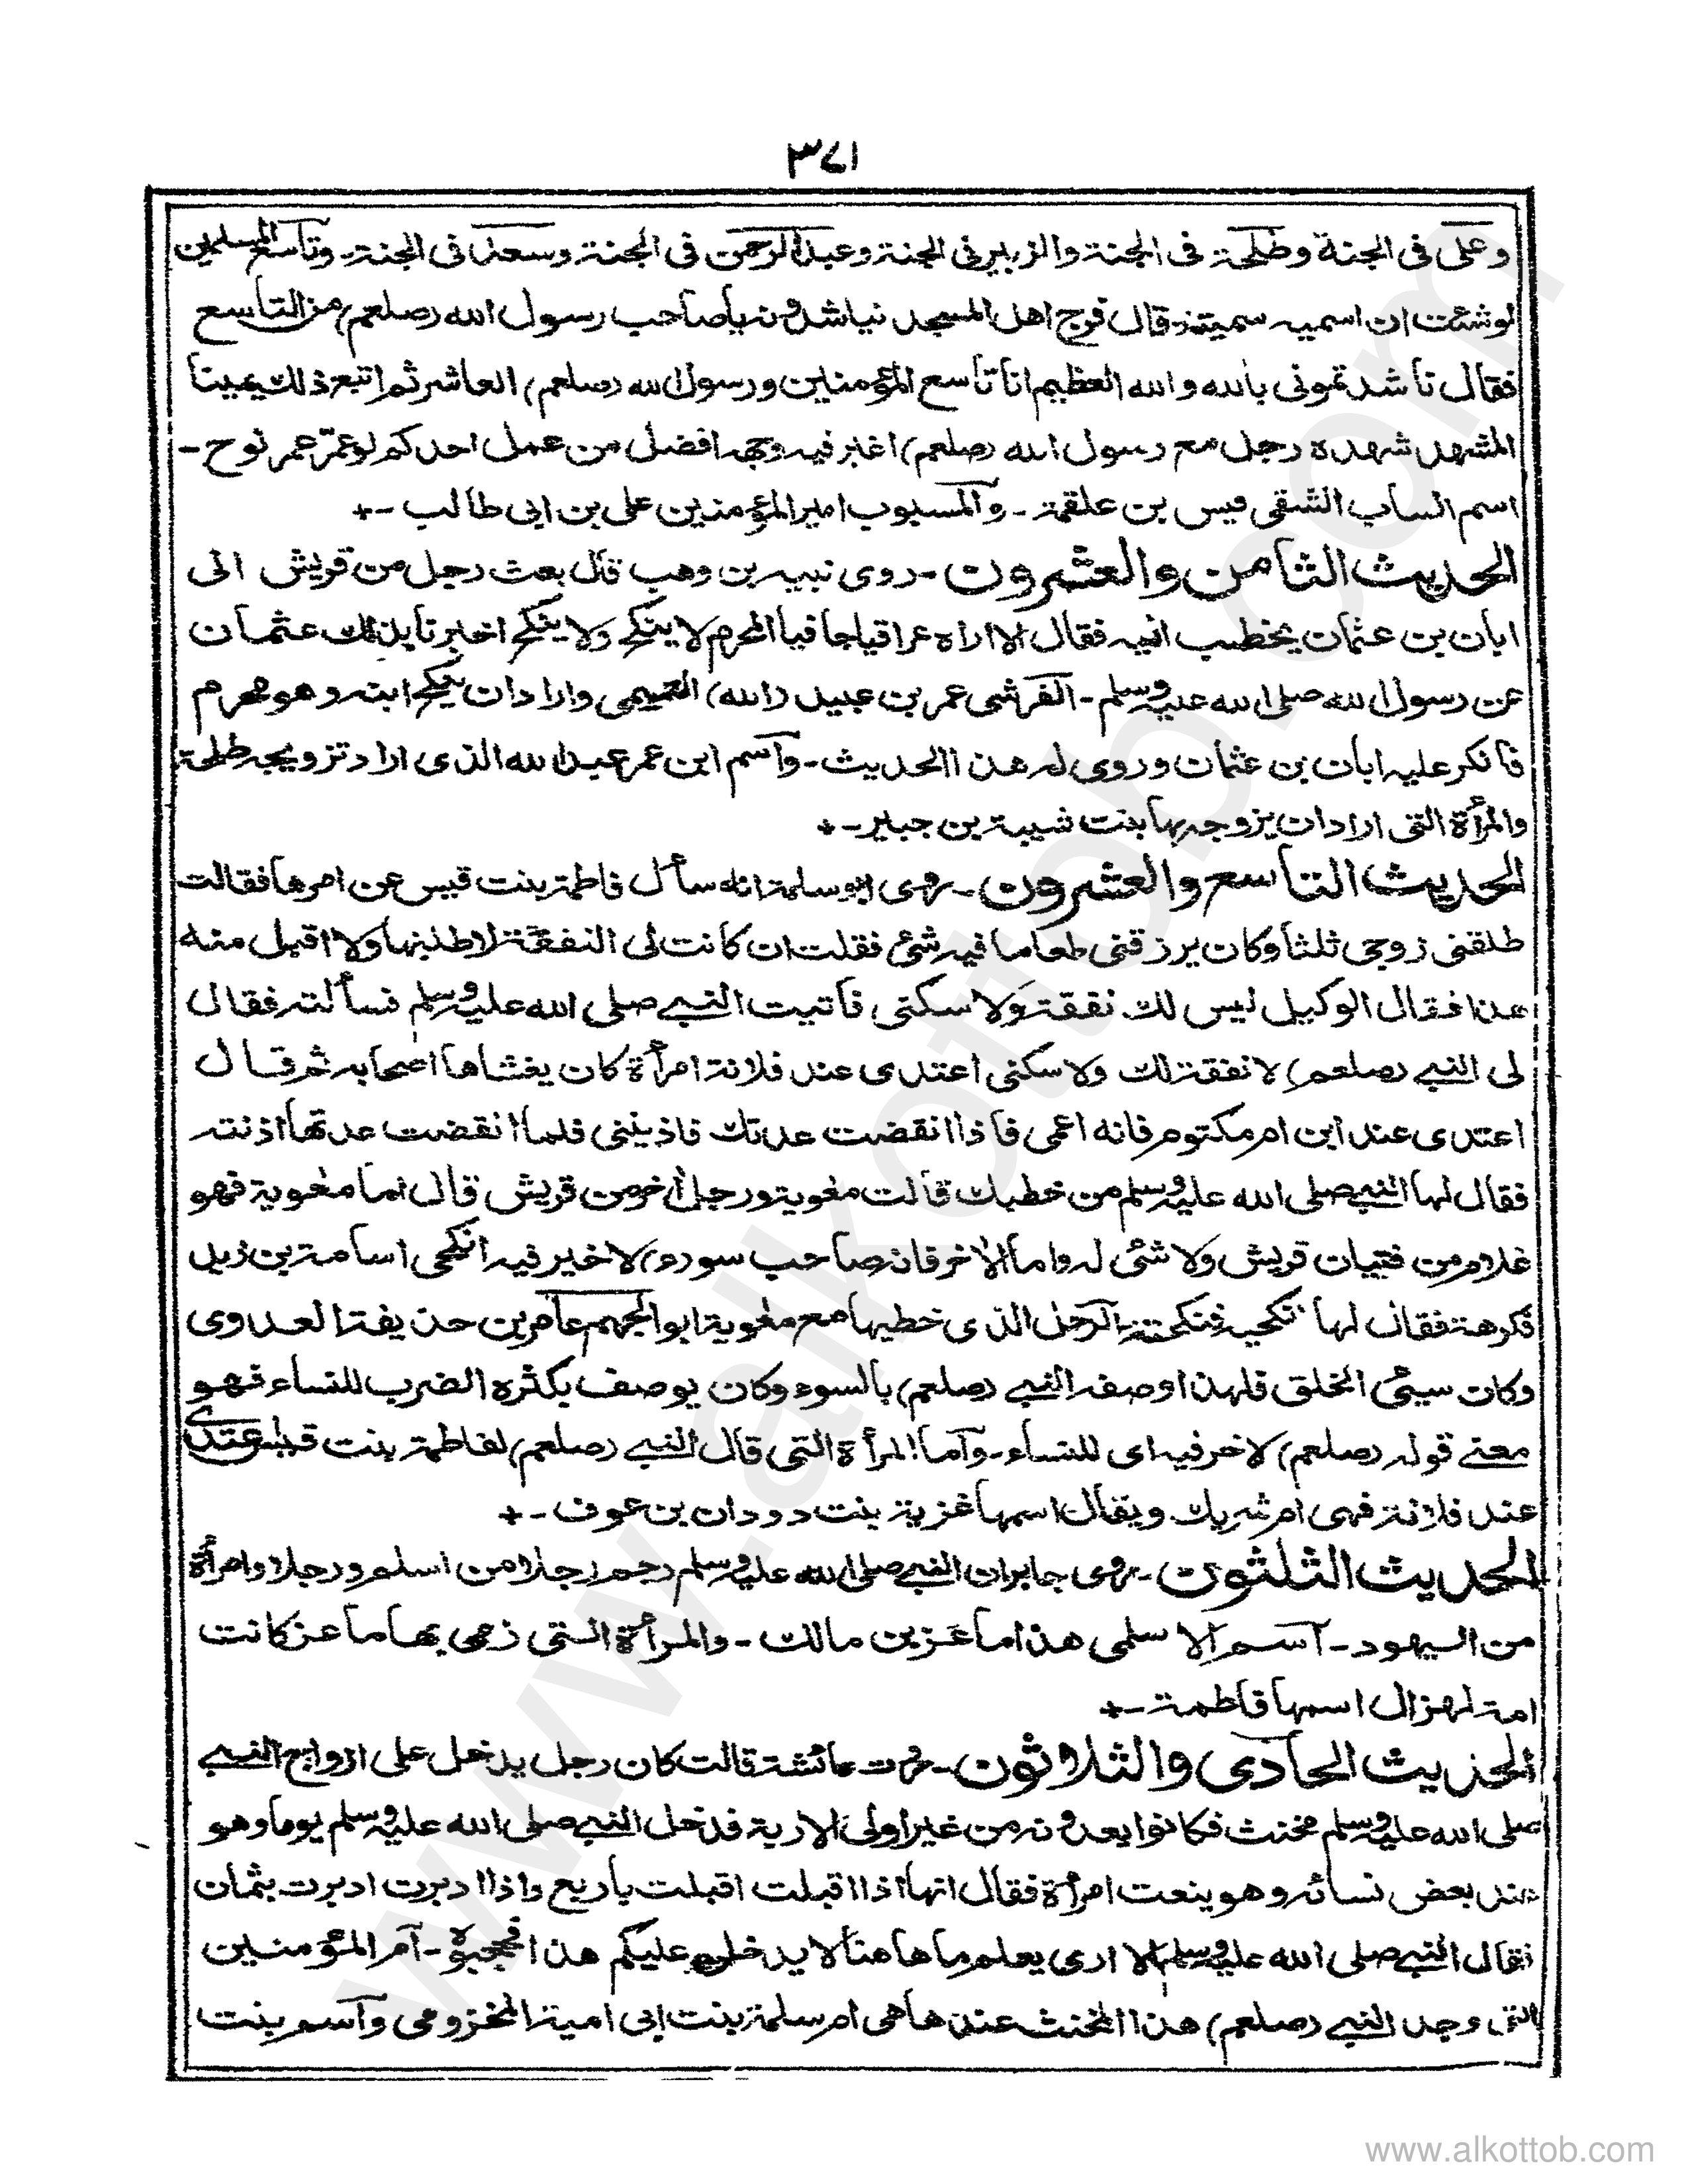 ٣٧١
وعلى فى الجنة وطلحة فى الجنة والزبير فى الجنة وعبد الرحمن فى الجنة وسعد فى الجنة - وتاسع المسلمين
لوشئت ان اسميه سميته - قال فرج اهل المسجد نيا شدونه ياصاحب رسول الله (صلعم) من التاسع
فقال نا شد تمونى بالله والله العظيم انا تاسع المؤمنين ورسول الله (صلعم) العاشر ثم اتبع ذلك يمينا
المشهد شهده رجل مع رسول الله (صلعم) اغبر فيه وجهه افضل من عمل احدكم لو عمّر عمر نوح -
اسم الساب الشقى قيس بن علقمة - والمسبوب امير المؤمنين على بن ابى طالب -+
الحديث الثامن والعشرون - روى نبيه بن وهب قال بعث رجل من قريش الى
ابان بن عثمان يخطب اليه فقال الا اراه عراقيا جافيا المحرم لا ينكح ولا ينكح اخبرنا بذلك عثمان
عن رسول الله صلى الله عليه وسلم - القرشى عمر بن عبيد (الله) التميمى وارادان ينكح ابنه وهو محرم
فانكر عليه ابان بن عثمان وروى له هذا الحديث - واسم ابن عمر عبد الله الذى اراد تزويجه طلحة
والمرأة التى ارادان يزوجه بها بنت شيبة بن جبير -+
الحديث التاسع والعشرون - روى ابو سلمة انه سأل فاطمة بنت قيس عن امرها فقالت
طلقنى زوجى ثلثا وكان يرزقنى طعاما فيه شئ فقلت ان كانت لى النفقة لاطلبنها ولا اقبل منه
هذا فقال الوكيل ليس لك نفقة ولا سكنى فاتيت النبى صلى الله عليه وسلم فسألته فقال
لى النبى (صلعم) لا نفقة لك ولا سكنى اعتدى عند فلانة امرأة كان يغشاها اصحابه ثم قال
اعتدى عند ابن ام مكتوم فانه اعمى فاذا انقضت عدتك فاذنينى فلما انقضت عدتها اذنته
فقال لها النبى صلى الله عليه وسلم من خطبك قالت معوية ورجل أخر من قريش قال اما معوية فهو
غلام من فتيان قريش ولا شئ له واما الأخر فانه صاحب سو(ء) لا خير فيه انكحى اسامة بن زيد
فكرهته فقال لها انكحيه فنكحته - الرجل الذى خطبها مع معوية ابو الجهم عامر بن حذيفة العدوى
وكان سيئ الخلق فلهذا وصفه النبى (صلعم) بالسوء وكان يوصف بكثره الضرب للنساء فهو
معنى قوله (صلعم) لا خر فيه اى للنساء - واما المرأة التى قال النبى (صلعم) لفاطمة بنت قيس اعتدى
عند فلانة فهى ام شريك ويقال اسمها غزية بنت دودان بن عوف -+
الحديث الثلثون - روى جابر ان النبى صلى الله عليه وسلم رجم رجلا من اسلم ورجلا وامرأة
من اليهود - اسم الاسلمى هذا ماعز بن مالك - والمرأة التى زمى بها ماعز كانت
امة لهزال اسمها فاطمة -+
الحديث الحادى والثلاثون - روت عائشة قالت كان رجل يدخل على ازواج النبى
صلى الله عليه وسلم مخنث فكانوا يعدونه من غير اولى الاربة فدخل النبى صلى الله عليه وسلم يوما وهو
عند بعض نسائه وهو ينعت امرأة فقال انها اذا اقبلت اقبلت باربع واذا ادبرت ادبرت بثمان
فقال النبى صلى الله عليه وسلم الا ارى يعلم ما هاهنا لا يدخلن عليكم هذا فحجبوه - ام المؤمنين
التى وجد النبى (صلعم) هذا المخنث عندها هى ام سلمة بنت ابى امية المخزومى واسم بنت
www.alkottob.com